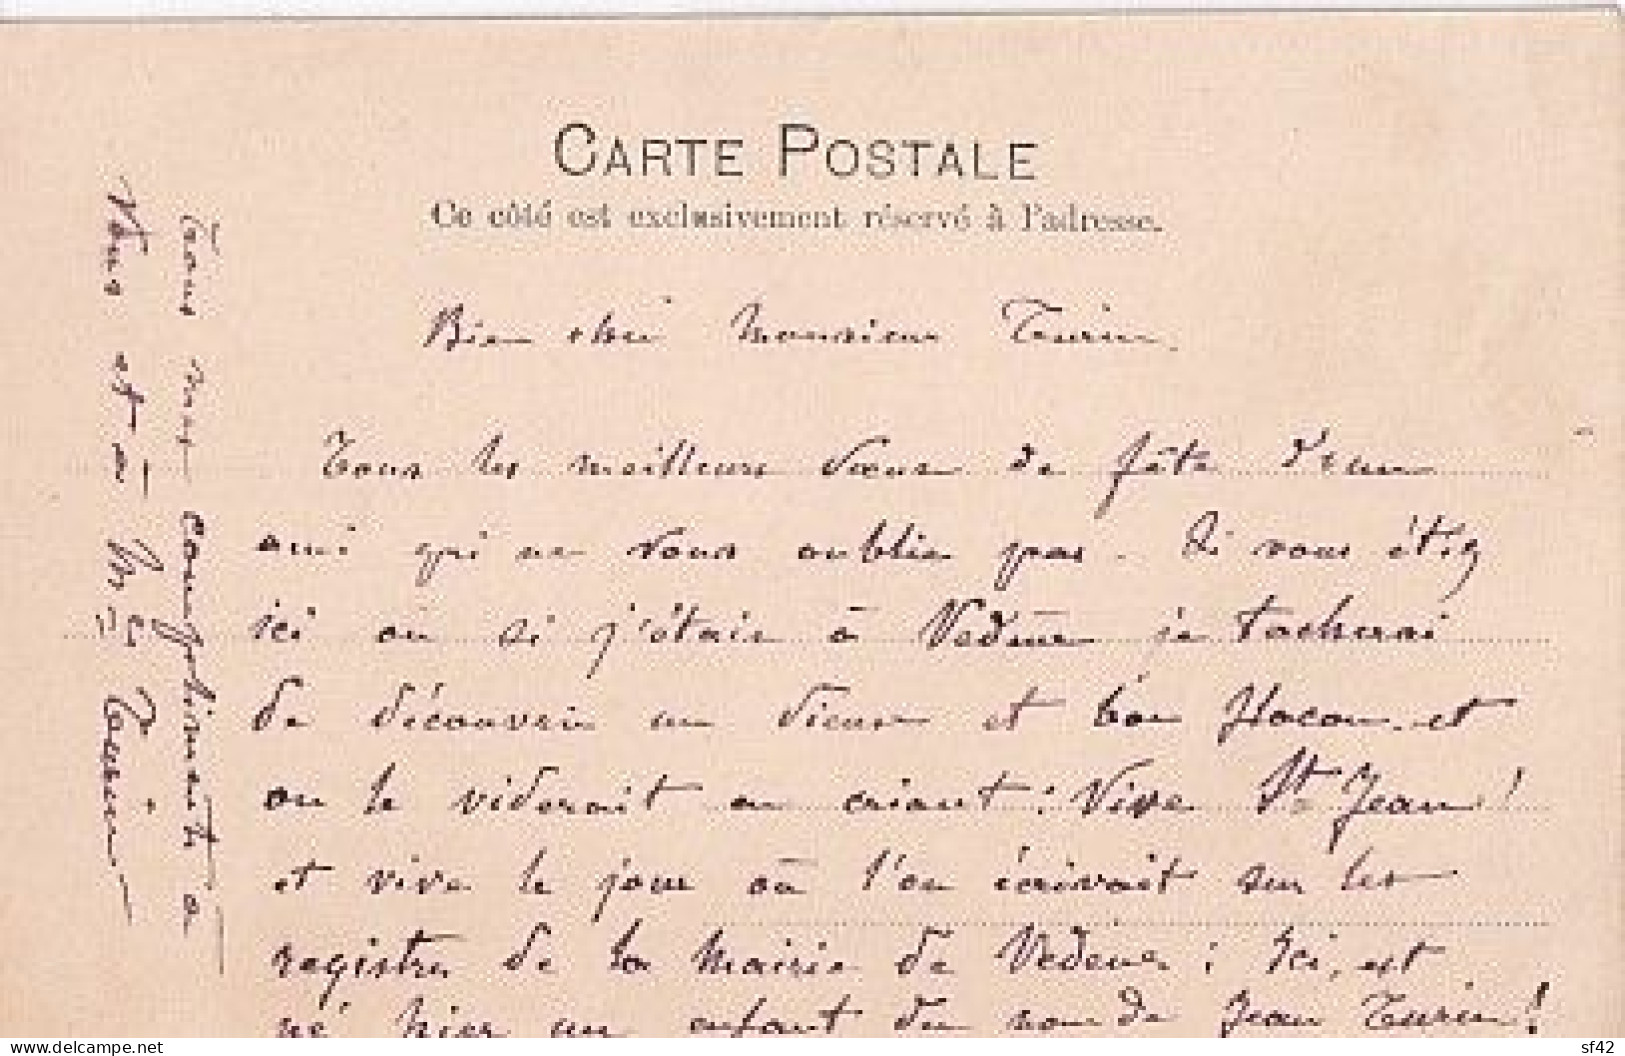 CARTE POSTALE
Ce côté est exclusivement réservé à l'adresse.
Bien cher Monsieur Turin.
Tous les meilleurs vœux de fête d'un
ami qui ne vous oublie pas. Si vous étiez
ici ou si j'étais à Vedène je tacherai
de découvrir un vieux et bon flacon et
on le viderait en criant : Vive St Jean !
et vive le jour où l'on écrivait sur les
registres de la Mairie de Vedène : Ici, est
né hier un enfant du nom de Jean Turin !
Tous mes compliments à
Vous et à Me Turin
delcampe.net
sf42